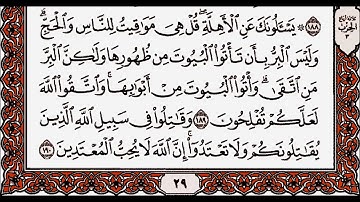 ١٨٨ ۞ يَسْـَٔلُونَكَ عَنِ ٱلْأَهِلَّةِ ۖ قُلْ هِىَ مَوَٰقِيتُ لِلنَّاسِ وَٱلْحَجِّ ۗ
وَلَيْسَ ٱلْبِرُّ بِأَن تَأْتُوا۟ ٱلْبُيُوتَ مِن ظُهُورِهَا وَلَٰكِنَّ ٱلْبِرَّ
مَنِ ٱتَّقَىٰ ۗ وَأْتُوا۟ ٱلْبُيُوتَ مِنْ أَبْوَٰبِهَا ۚ وَٱتَّقُوا۟ ٱللَّهَ
لَعَلَّكُمْ تُفْلِحُونَ ١٨٩ وَقَٰتِلُوا۟ فِى سَبِيلِ ٱللَّهِ ٱلَّذِينَ
يُقَٰتِلُونَكُمْ وَلَا تَعْتَدُوٓا۟ ۚ إِنَّ ٱللَّهَ لَا يُحِبُّ ٱلْمُعْتَدِينَ ١٩٠
٢٩